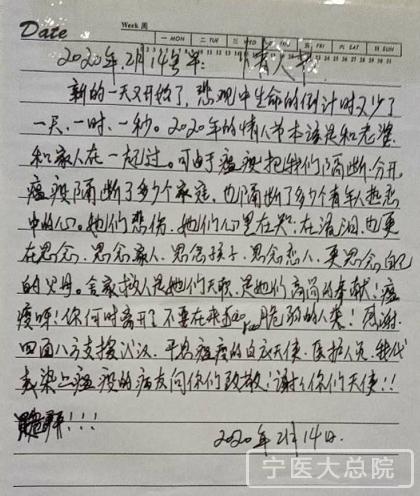 Date
Week 周
MON TUE WED THU FRI SAT SUN
2020年2月14号 情人节
新的一天又开始了，悲观中生命的倒计时又少了
一天、一时、一秒。2020年的情人节本该是和老婆
和家人在一起过。可由于瘟疫把我们隔断分开，
瘟疫隔断了多少个家庭，也隔断了多少个青年人热恋
中的心。她们悲伤，她们心里在哭，在落泪，也更
在思念、思念家人、思念孩子、思念恋人，更思念自己
的父母。舍家救人是她们天职，是她们高尚的奉献！瘟
疫呀！你何时离开了不要在来 脆弱的人类！感谢
四面八方支援武汉、平息瘟疫的白衣天使、医护人员，我代
表染上瘟疫的病友向你们致敬！谢谢你们天使！！
！！！
2020年2月14日.
宁医大总院